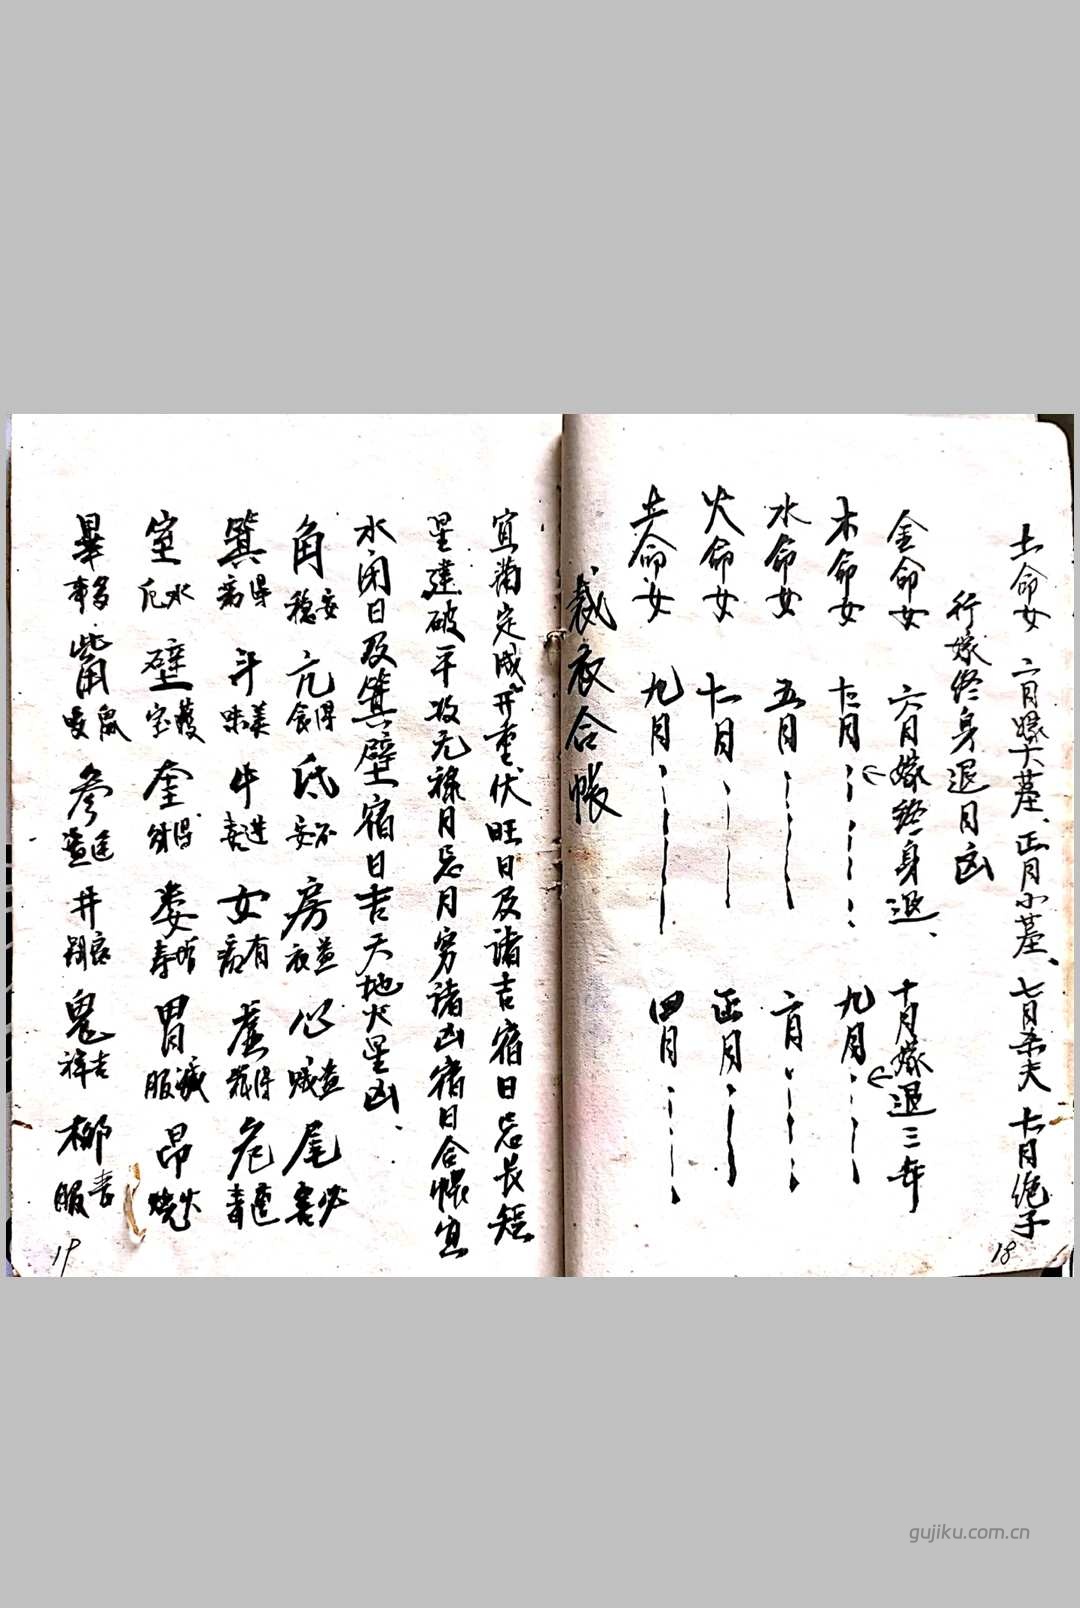 土命女 二月嫁大墓、正月小墓、七月杀夫 十一月绝子
行嫁终身退月凶
金命女 六月嫁终身退、 十月嫁退三年
木命女 十二月 九月
水命女 五月 二月
火命女 十一月 正月
土命女 九月 四月
裁衣合帐
宜满定成开重伏旺日及诸吉宿日忌长短
星建破平收无禄月忌月穷诸凶宿日合帐宜
水闭日及箕壁宿日吉天地火星凶、
角 安稳 亢 得食 氐 不安 房 益衣 心 盗贼 尾 必害
箕 得病 斗 美味 牛 进喜 女 有病 虚 得 危 遭毒
室 水厄 壁 获宝 奎 得财 娄 增寿 胃 减服 昴 火烧
畢 多事 觜 鼠咬 参 逢盗 井 鬼 吉祥 柳 丧服
18
19
gujiku.com.cn